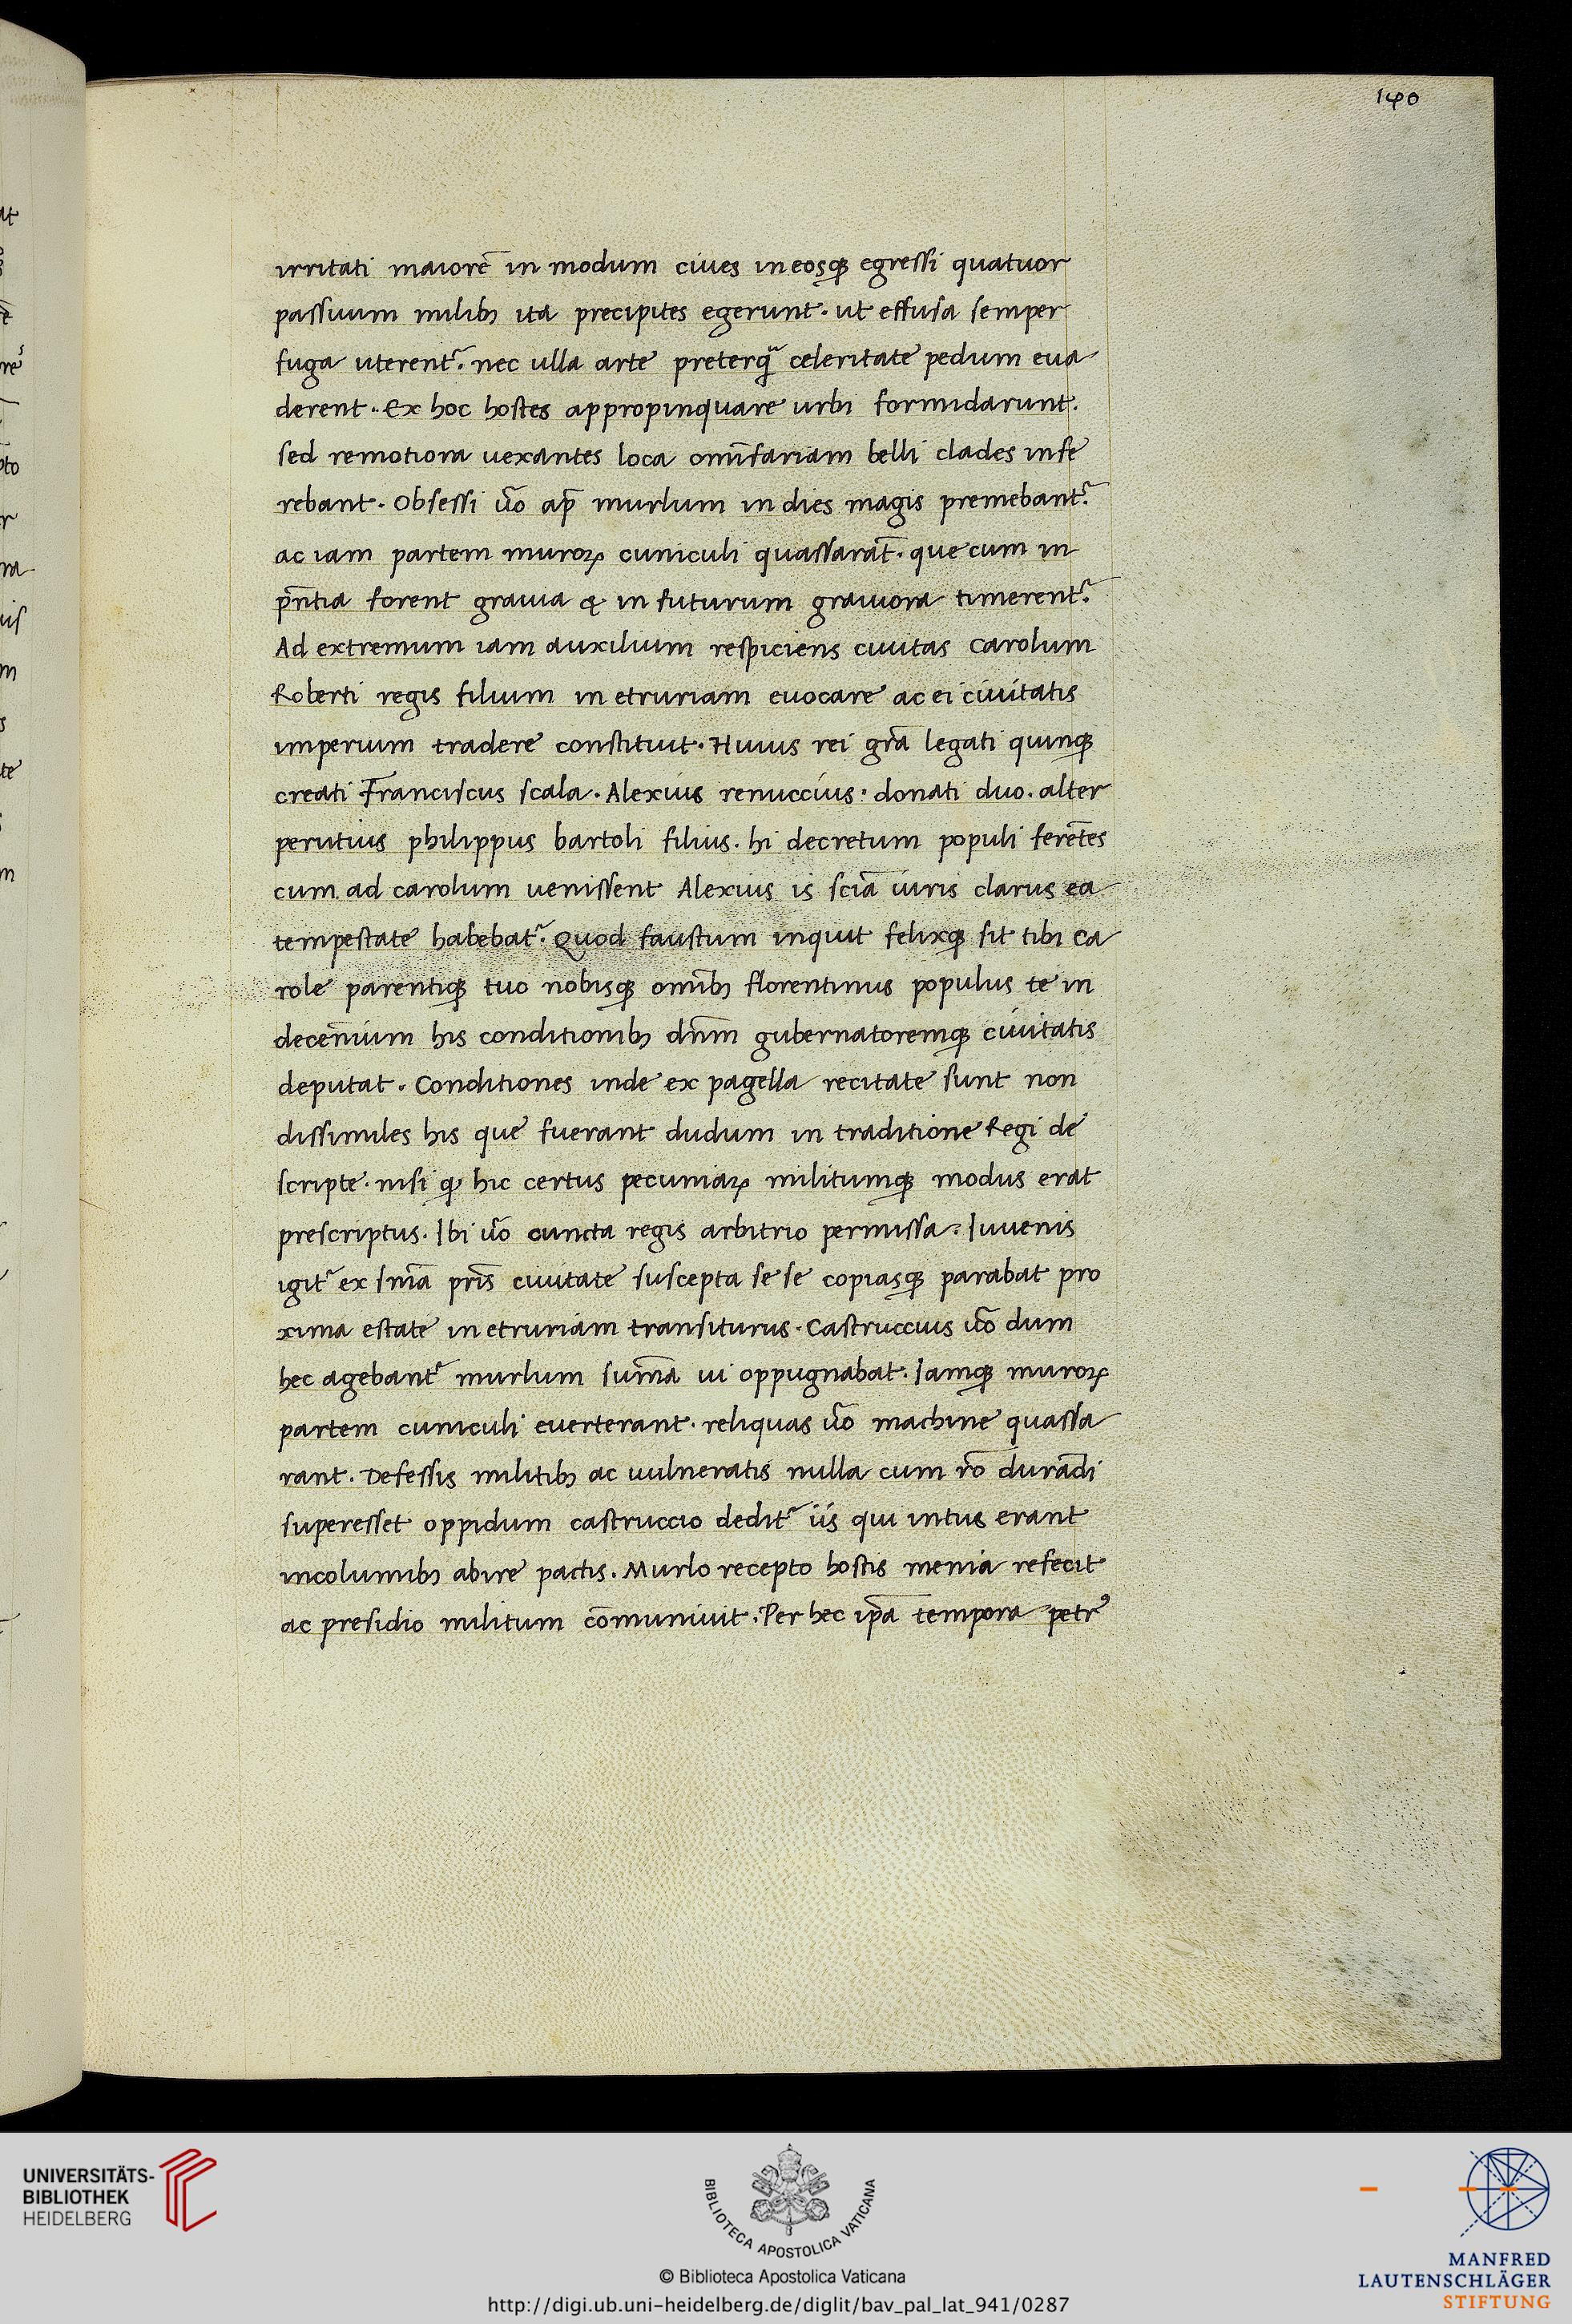 140
irritati maiorē in modum ciues in eosqꝫ egressi quatuor
passuum milibꝫ ita precipites egerunt. ut effusa semper
fuga uterent᷑. nec ulla arte preterqᷓ celeritate pedum eua
derent. Ex hoc hostes appropinquare urbi formidarunt.
sed remotiora uexantes loca omīfariam belli clades infe
rebant. Obsessi u͂o ap̄ murlum in dies magis premebant᷑.
ac iam partem muroꝝ cuniculi quassarāt. que cum in
pn̄tia forent grauia & in futurum grauiora timerent᷑.
Ad extremum iam auxilium respiciens ciuitas Carolum
Roberti regis filium in etruriam euocare ac ei ciuitatis
imperium tradere constituit. Huius rei gr̄a legati quinqꝫ
creati Franciscus scala. Alexius renuccius: donati duo. alter
perutius philippus bartoli filius. hi decretum populi ferētes
cum ad carolum uenissent Alexius is sciā iuris clarus ea
tempestate habebat᷑. Quod faustum inquit felixqꝫ sit tibi Ca
role parentiqꝫ tuo nobisqꝫ omībꝫ florentinus populus te in
decen̄ium his conditionibꝫ dn̄m gubernatoremqꝫ ciuitatis
deputat. Conditiones inde ex pagella recitate sunt non
dissimiles his que fuerant dudum in traditione Regi de
scripte. nisi ꝙ hic certus pecuniaꝝ militumqꝫ modus erat
prescriptus. Ibi u͂o cuncta regis arbitrio permissa. Iuuenis
igit᷑ ex sn̄ia pr̄is ciuitate suscepta se se copiasqꝫ parabat pro
xima estate in etruriam transiturus. Castruccius u͂o dum
hec agebant᷑ murlum sum̄a ui oppugnabat. Iamqꝫ muroꝝ
partem cuniculi euerterant. reliquas u͂o machine quassa
rant. Defessis militibꝫ ac uulneratis nulla cum rō durādi
superesset oppidum castruccio dedit᷑ iis qui intus erant
incolumibꝫ abire pactis. Murlo recepto hostis menia refecit
ac presidio militum cōmuniuit. Per hec ip̄a tempora petrꝰ
UNIVERSITÄTS-
BIBLIOTHEK
HEIDELBERG
BIBLIOTECA APOSTOLICA VATICANA
© Biblioteca Apostolica Vaticana
http://digi.ub.uni-heidelberg.de/diglit/bav_pal_lat_941/0287
MANFRED
LAUTENSCHLÄGER
STIFTUNG